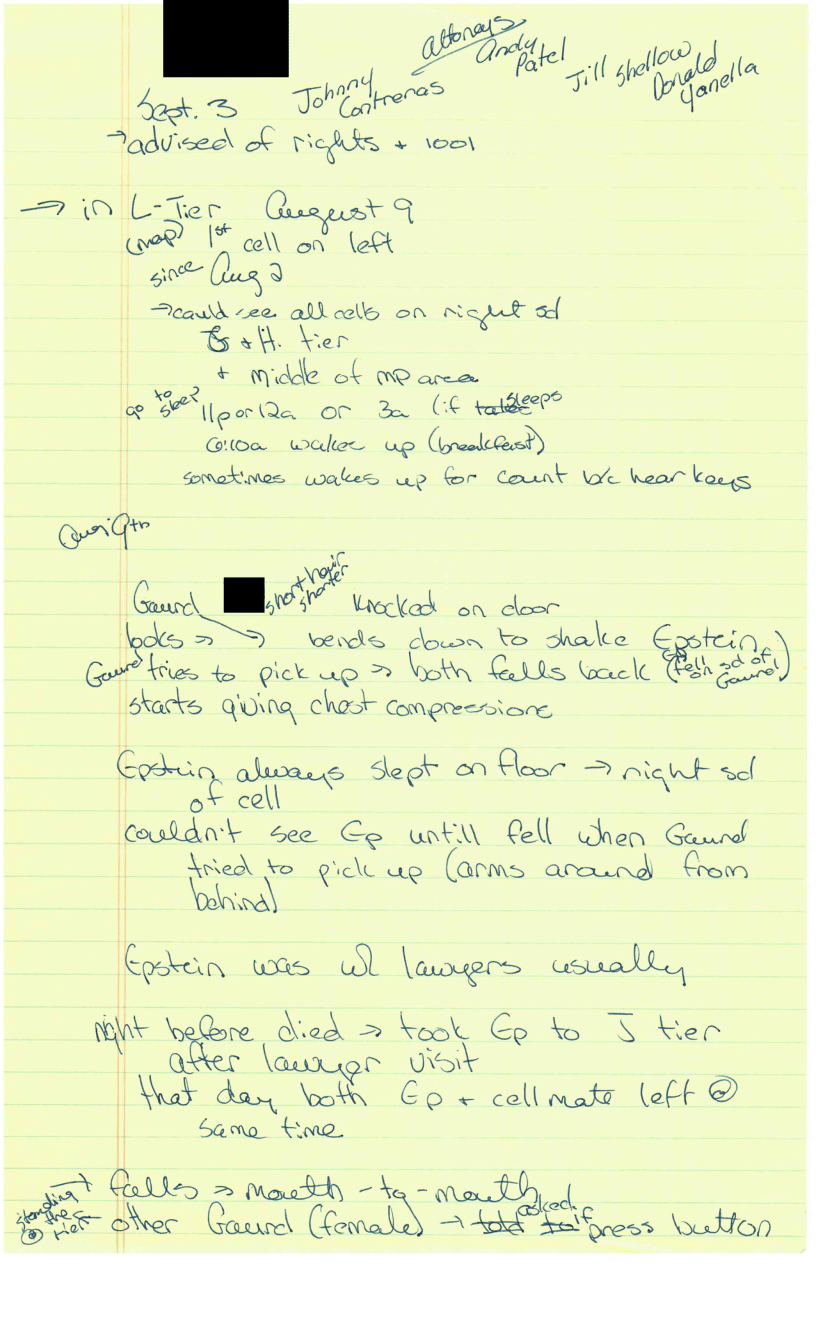 attorneys
Andy
Patel
Jill Shellow
Donald
Yanella
Johnny
Contreras
Sept. 3
→advised of rights + 1001
→ in L-Tier August 9
(map) 1st cell on left
since Aug 2
→could see all cells on right sd
G + H. tier
+ middle of MP area
go to sleep 11p or 12a or 3a (if takes sleeps
6:10a wakes up (breakfast)
sometimes wakes up for count b/c hear keys
Aug 9th
Gaurd short hair shorter knocked on door
looks → → bends down to shake Epstein
Gaurd tries to pick up → both falls back (Ep fell on sd of Gaurd)
starts giving chest compressions
Epstein always slept on floor → right sd
of cell
couldn't see Ep untill fell when Gaurd
tried to pick up (arms around from
behind)
Epstein was w/ lawyers usually
right before died → took Ep to J tier
after lawyer visit
that day both Ep + cellmate left @
same time
→ falls → mouth-to-mouth
standing @ the tier other Gaurd (female) → told to asked if press button